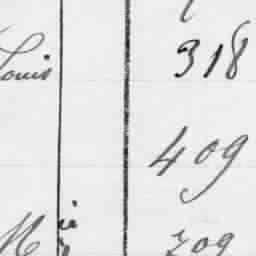 Louis 318
409
209